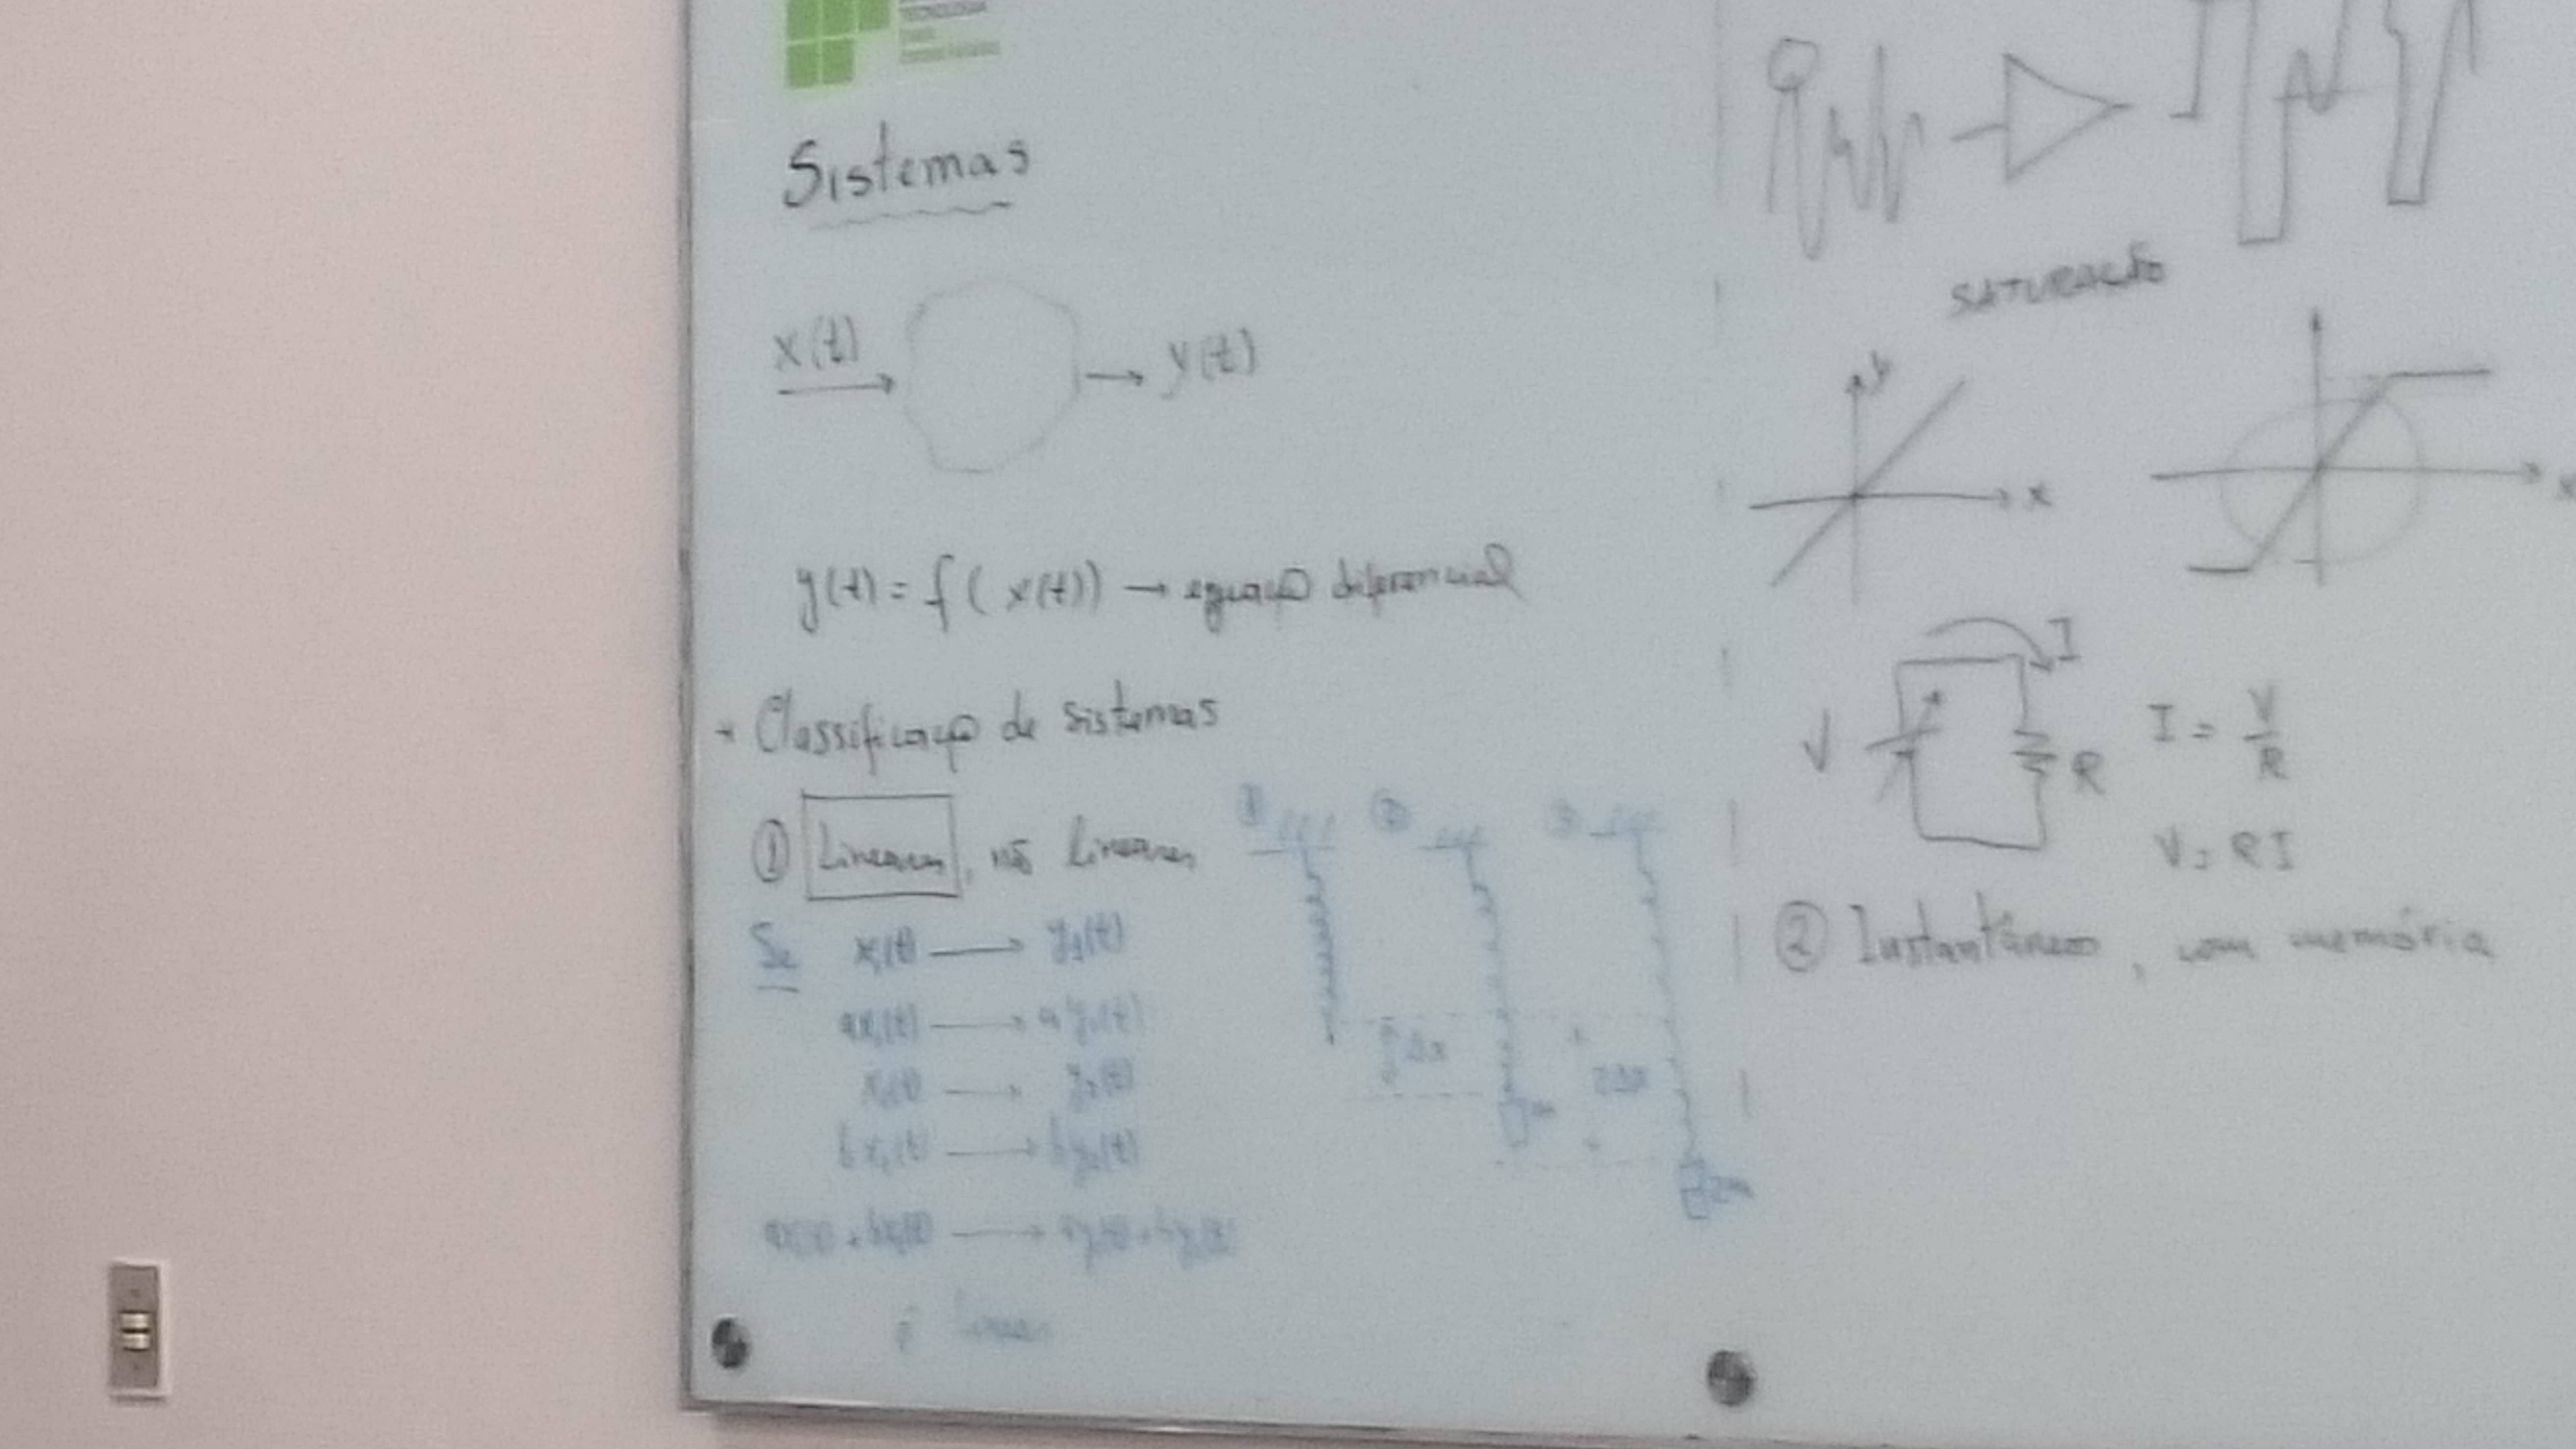 TECNOLOGIA
Sistemas
x(t)
y(t)
y(t) = f(x(t)) → equação diferencial
Classificação de sistemas
① Lineares, não lineares
Se x₁(t) → y₁(t)
ax₁(t) → ay₁(t)
x₂(t) → y₂(t)
bx₂(t) → by₂(t)
ax₁(t) + bx₂(t) → ay₁(t) + by₂(t)
é linear
① ② ③
Δx
m
2Δx
2m
SATURAÇÃO
y
x
x
I
V
R
I = V/R
V = RI
② Instantâneo, com memória